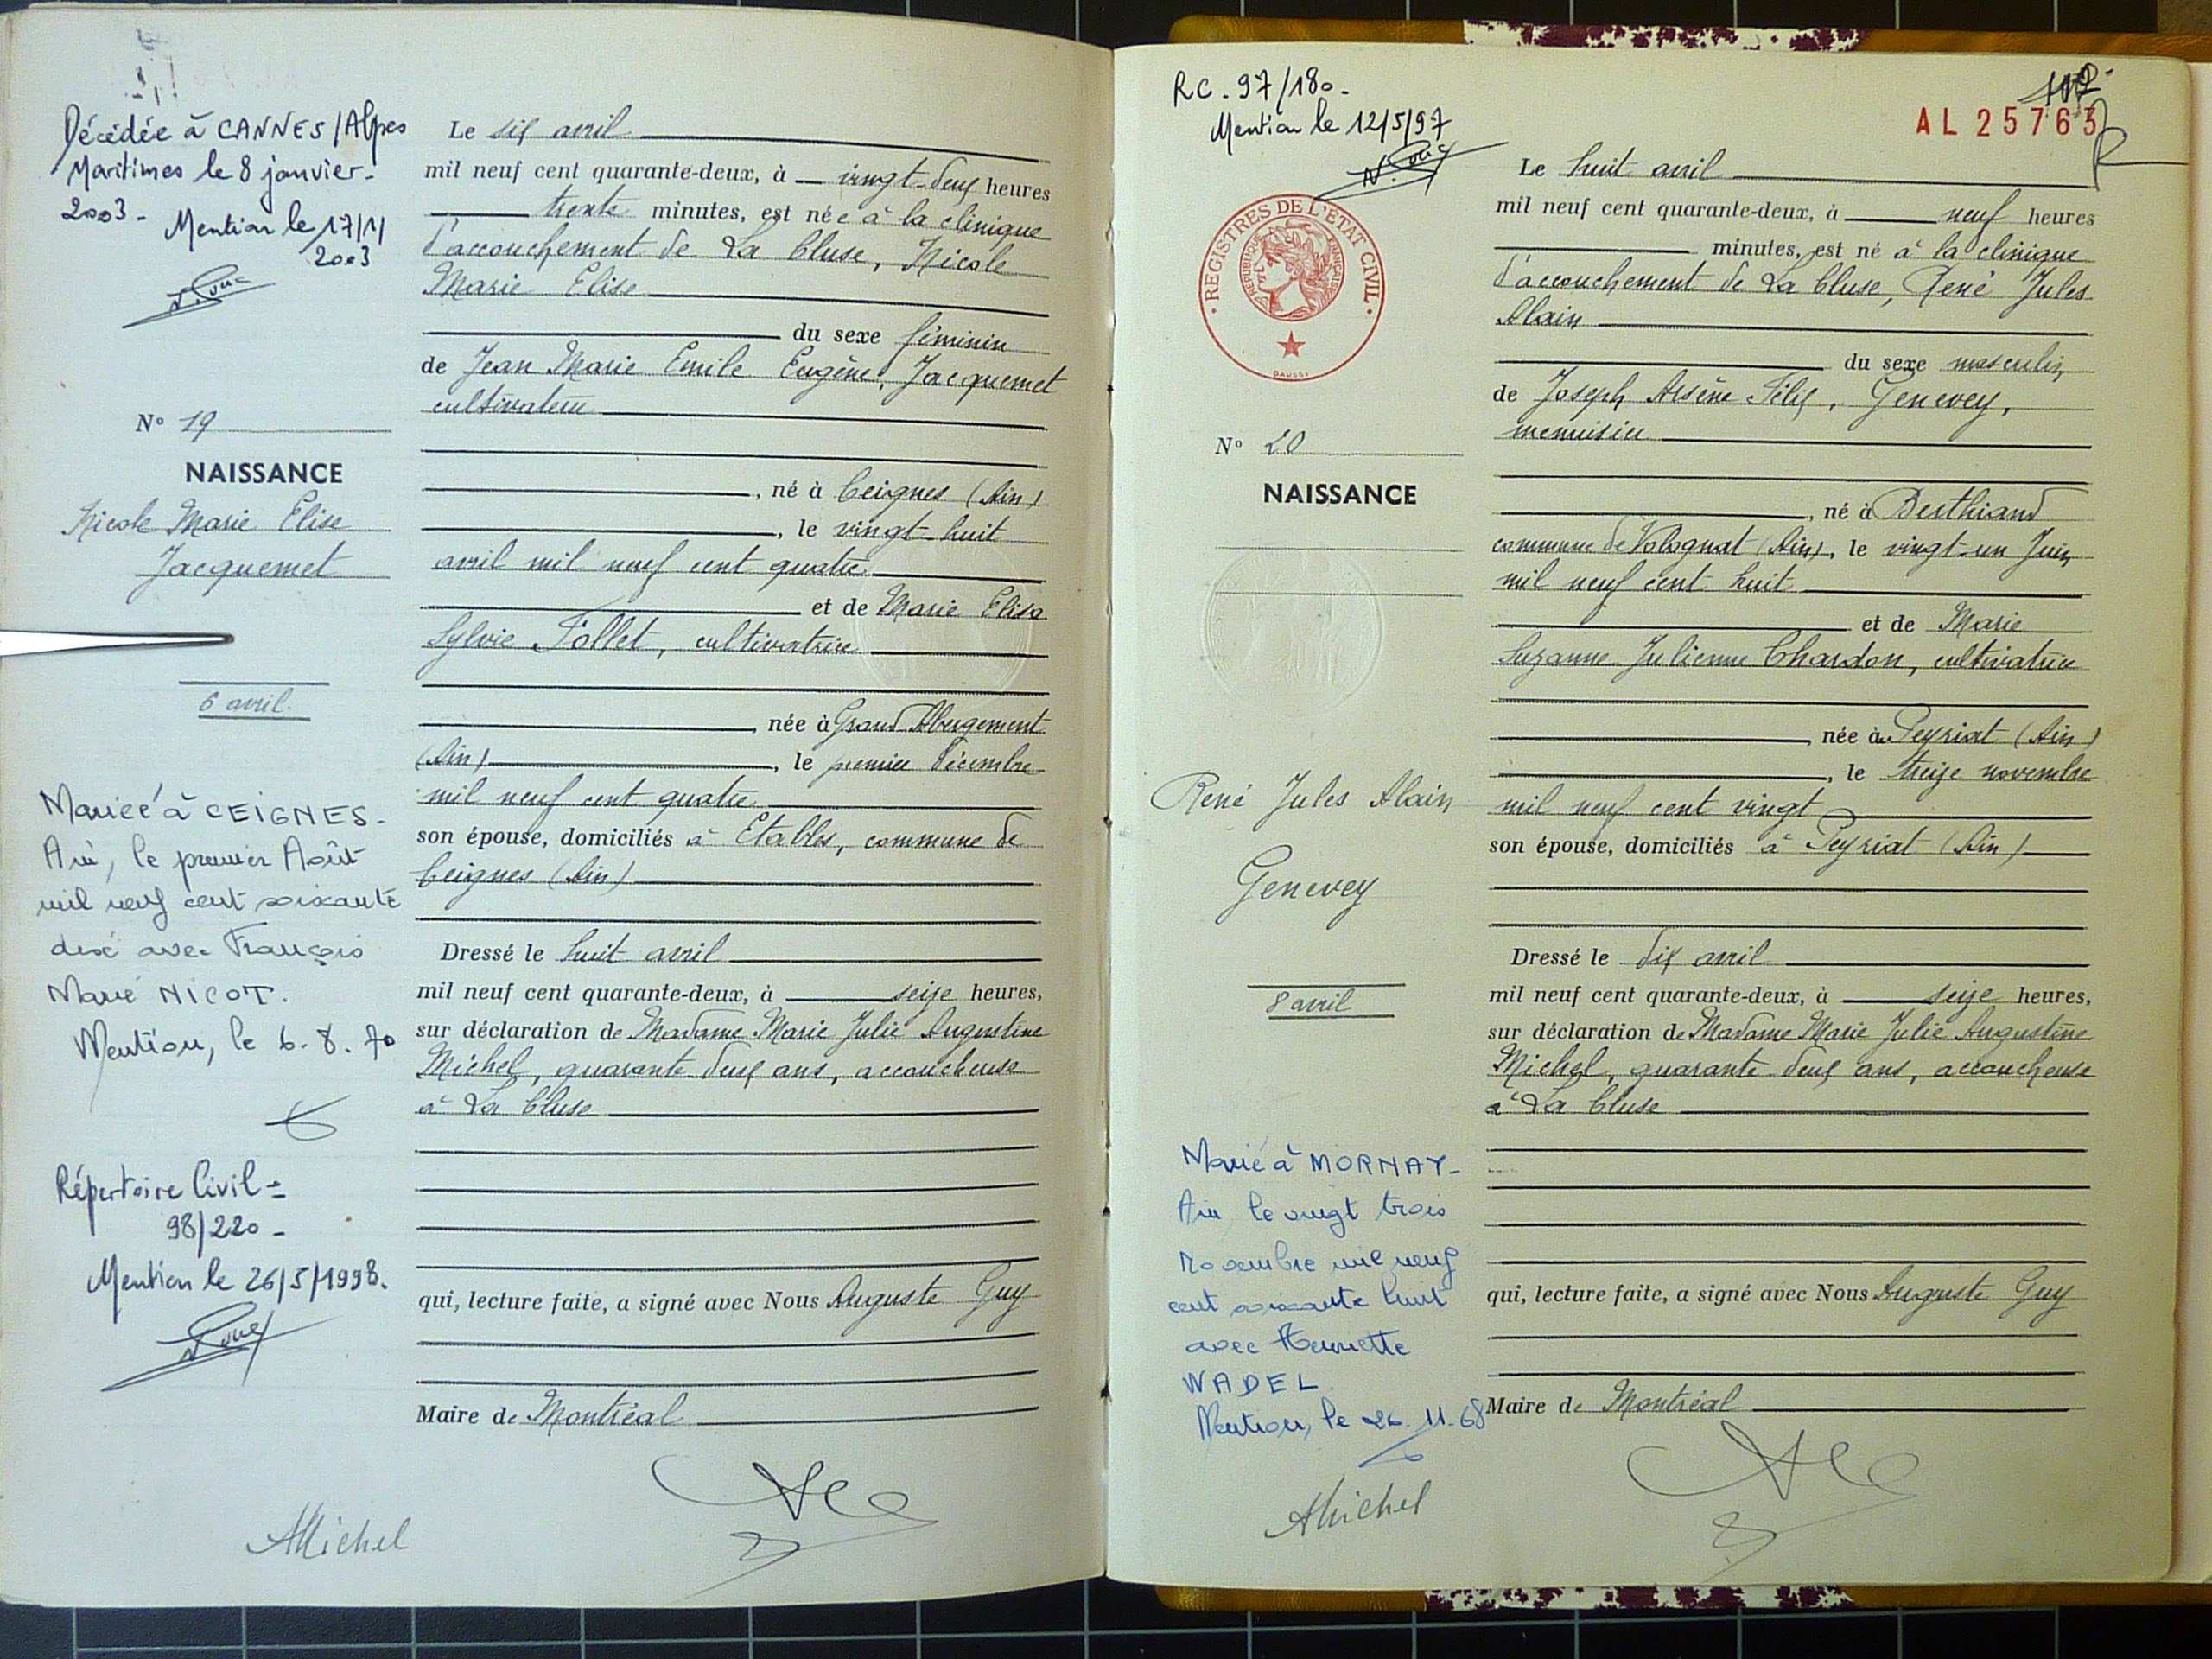 Décédée à CANNES/Alpes
Maritimes le 8 janvier-
2003- Mention le 17/1/
2003
N° 19
NAISSANCE
Nicole Marie Elise
Jacquemet
6 avril.
Mariée à CEIGNES-
Ain, le premier Août
mil neuf cent soixante
dix avec François
Marie NICOT.
Mention, le 6.8.70
Répertoire Civil-
98/220-
Mention le 26/5/1998.
Le six avril
mil neuf cent quarante-deux, à vingt-deux heures
trente minutes, est née à la clinique
d'accouchement de La Cluse, Nicole
Marie Elise
du sexe féminin
de Jean Marie Emile Eugène, Jacquemet
cultivateur
, né à Ceignes (Ain)
, le vingt-huit
avril mil neuf cent quatre
et de Marie Elisa
Sylvie Follet, cultivatrice
née à Grand Abergement
(Ain) , le premier décembre
mil neuf cent quatre
son épouse, domiciliés à Etables, commune de
Ceignes (Ain)
Dressé le huit avril
mil neuf cent quarante-deux, à seize heures,
sur déclaration de Madame Marie Julie Augustine
Michel, quarante deux ans, accoucheuse
à La Cluse
qui, lecture faite, a signé avec Nous Auguste Guy
Maire de Montréal
AMichel
RC. 97/180-
Mention le 12/5/97
AL 25763
REGISTRES DE L'ÉTAT CIVIL
RÉPUBLIQUE FRANÇAISE
N° 20
NAISSANCE
René Jules Alain
Genevey
8 avril
Marié à MORNAY-
Ain le vingt trois
Novembre mil neuf
cent soixante huit
avec Henriette
WADEL
Mention, le 26.11.68
Le huit avril
mil neuf cent quarante-deux, à neuf heures
minutes, est né à la clinique
d'accouchement de La Cluse, René Jules
Alain
du sexe masculin
de Joseph Arsène Félix, Genevey,
menuisier
, né à Berthiand
commune de Volognat (Ain), le vingt-un Juin
mil neuf cent huit
et de Marie
Suzanne Julienne Chardon, cultivatrice
née à Peyriat (Ain)
, le treize novembre
mil neuf cent vingt
son épouse, domiciliés à Peyriat (Ain)
Dressé le dix avril
mil neuf cent quarante-deux, à seize heures,
sur déclaration de Madame Marie Julie Augustine
Michel, quarante deux ans, accoucheuse
à La Cluse
qui, lecture faite, a signé avec Nous Auguste Guy
Maire de Montréal
AMichel